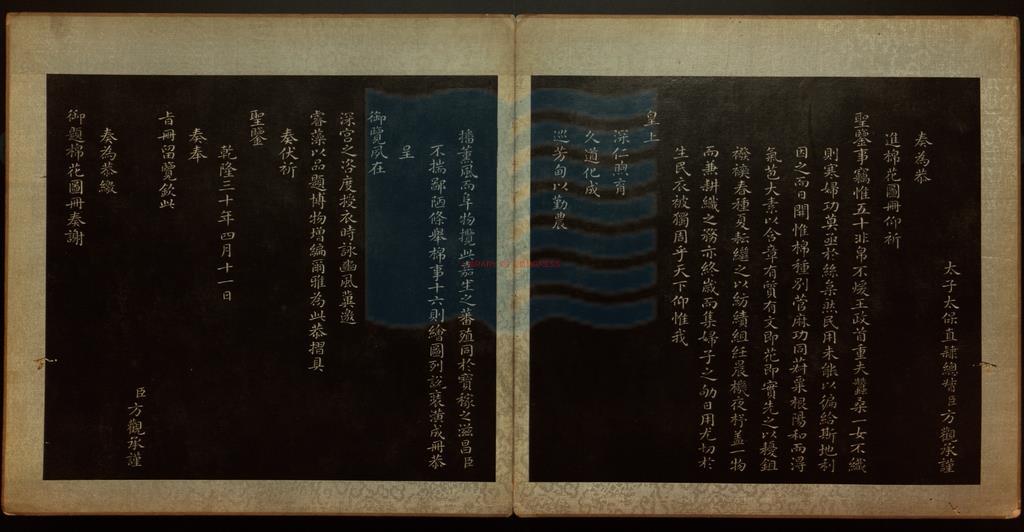 太子太保直隸總督臣方觀承謹
奏為恭
進棉花圖冊仰祈
聖鑒事竊惟五十非帛不煖王政首重夫蠶桑一女不織
則寒婦功莫亟於絲枲然民用未能以徧給斯地利
因之而日開惟棉種別菅麻功同菽粟根陽和而得
氣苞大素以含章有質有文即花即實先之以耰鉏
襏襫春種夏耘繼之以紡績組紝晨機夜杼蓋一物
而兼耕織之務亦終歲而集婦子之劬日用尤切於
生民衣被獨周乎天下仰惟我
皇上
深仁煦育
久道化成
巡芳甸以勤農
播薰風而阜物攬此嘉生之蕃殖同於寶稼之滋昌臣
不揣鄙陋條舉棉事十六則繪圖列說裝潢成冊恭
呈
御覽夙在
深宮之咨度授衣時詠豳風冀邀
睿藻以品題博物增編爾雅為此恭摺具
奏伏祈
聖鑒
乾隆三十年四月十一日
奏奉
旨冊留覽欽此
奏為恭繳
御題棉花圖冊奏謝
臣方觀承謹
LIBRARY OF CONGRESS